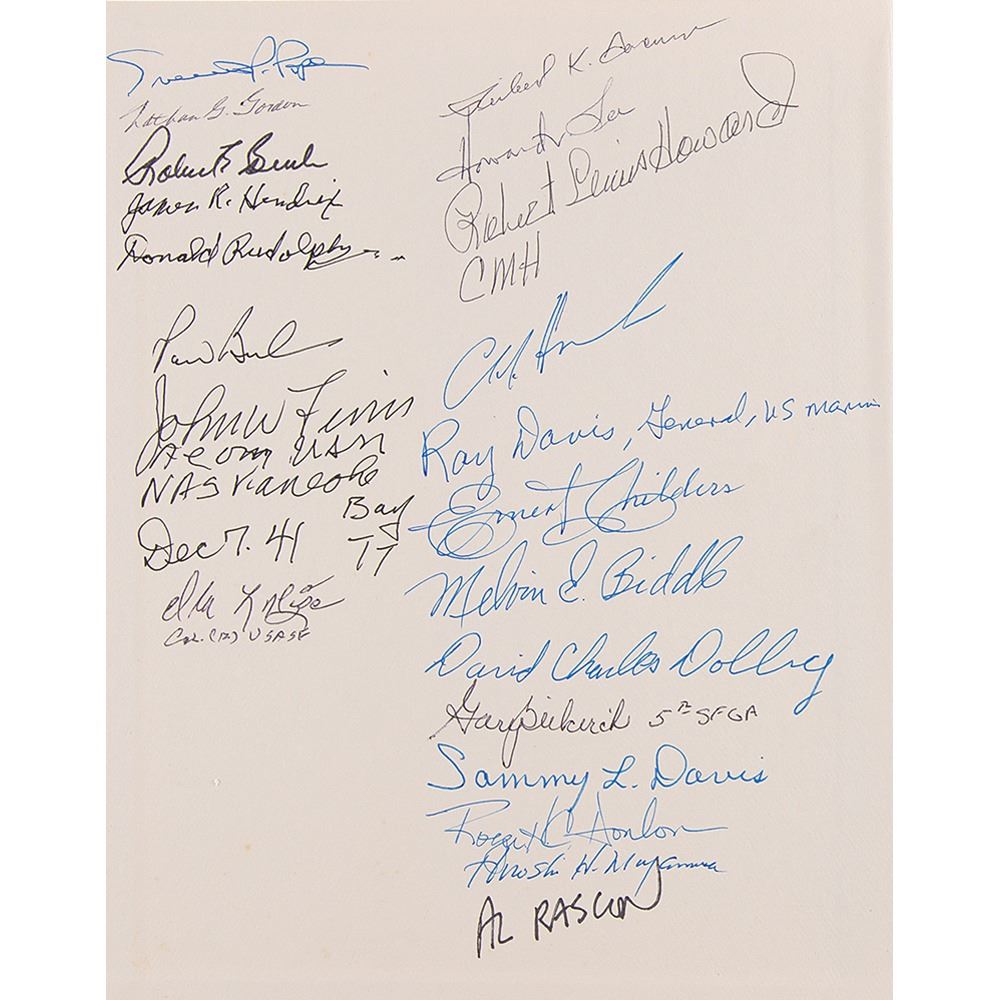 Everett P. Pope
Nathan G. Gordon
Robert Bush
James R. Hendrix
Donald Rudolph
Paul Buc
John W Finn
Lt Com USN
NAS Kaneohe
Bay
Dec 7. 41 TT
Col. (R) USASF
K.
Howard Lee
Robert Lewis Howard
CMH
Ray Davis, General, US Marine
Ernest Childers
Melvin E. Biddle
David Charles Dolby
Gary Beikirch 5th SFGA
Sammy L. Davis
Hiroshi H. Miyamura
AL RASCON